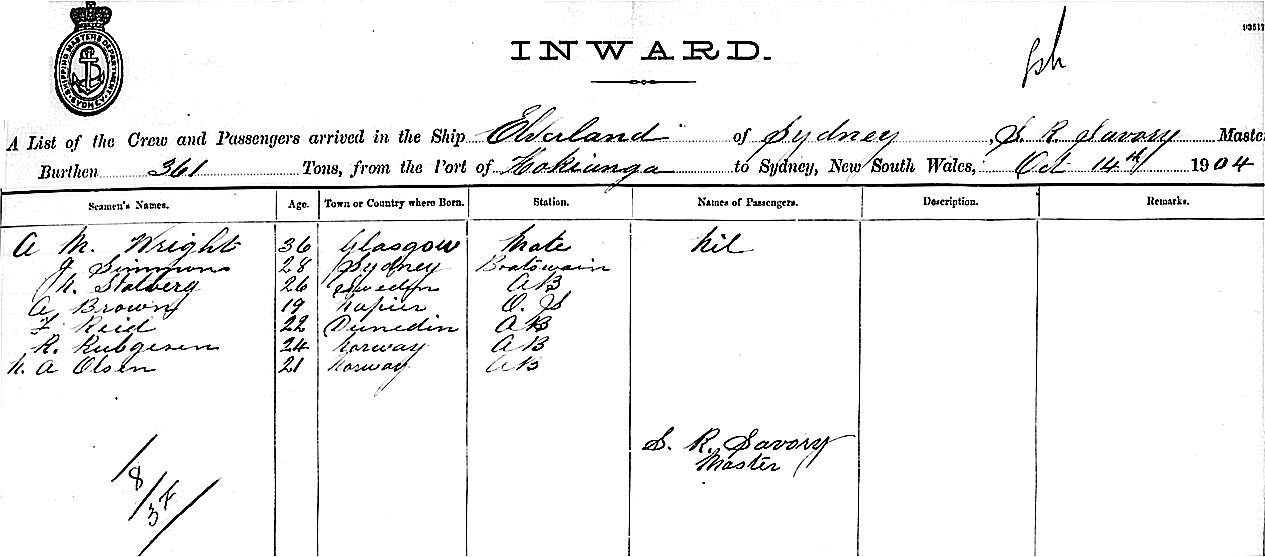 SHIPPING MASTERS DEPARTMENT SYDNEY
INWARD.
A List of the Crew and Passengers arrived in the Ship Elverland of Sydney, S. R. Savory Master
Burthen 361 Tons, from the Port of Hokianga to Sydney, New South Wales, Oct 14th 1904
Seamen's Names. Age. Town or Country where Born. Station. Names of Passengers. Description. Remarks.
A M. Wright 36 Glasgow Mate Nil
J. Simmons 28 Sydney Boatswain
N. Stalberg 26 Sweden AB
A. Brown 19 Napier O.S
F. Reid 22 Dunedin AB
R. Rubgesen 24 Norway AB
N. A Olsen 21 Norway AB
S. R. Savory
Master